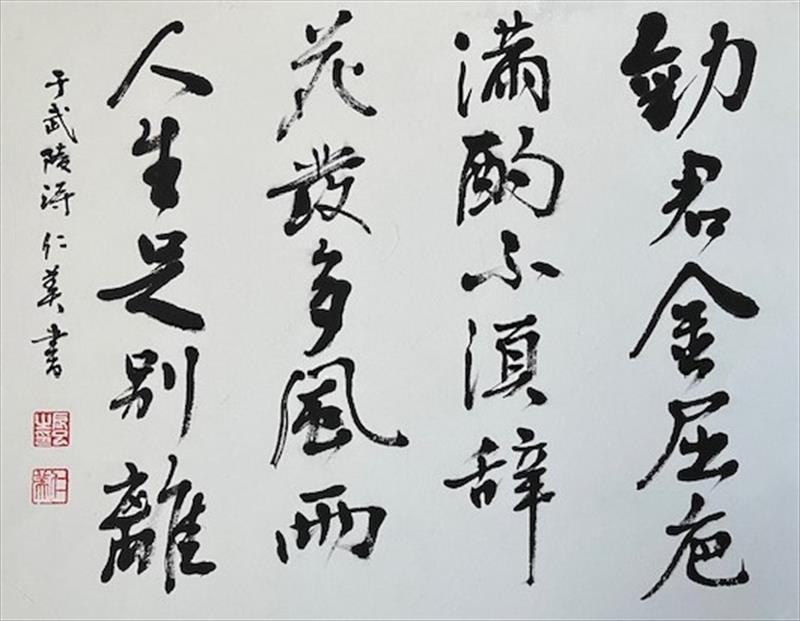 勸君金屈卮
滿酌不須辞
花發多風雨
人生足別離
于武陵詩 仁美書
仁美